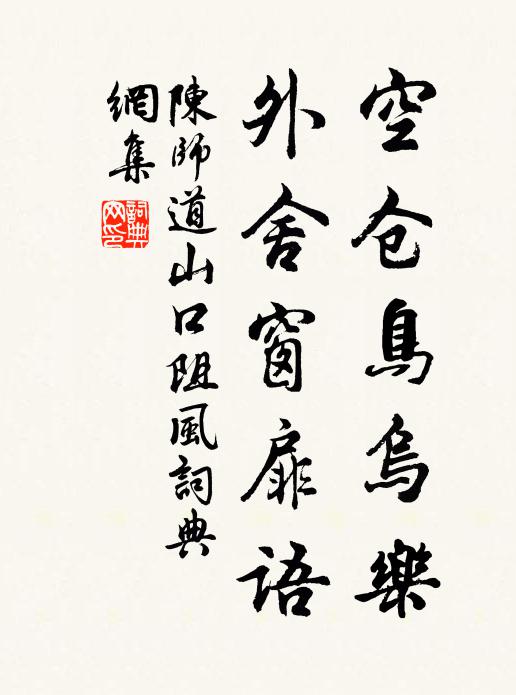 空仓鳥烏樂
外舍窗扉語
陳師道山口阻風詞典
網集
詞典
网印